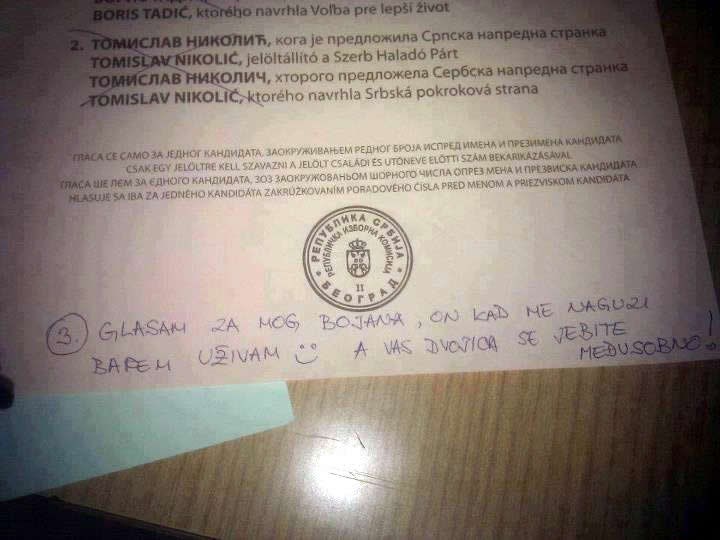 BORIS TADIĆ, ktorého navrhla Voľba pre lepší život
2. ТОМИСЛАВ НИКОЛИЋ, кога је предложила Српска напредна странка
TOMISLAV NIKOLIĆ, jelöltállító a Szerb Haladó Párt
ТОМИСЛАВ НИКОЛИЧ, хторого предложела Сербска напредна странка
TOMISLAV NIKOLIĆ, ktorého navrhla Srbská pokroková strana
ГЛАСА СЕ САМО ЗА ЈЕДНОГ КАНДИДАТА, ЗАОКРУЖИВАЊЕМ РЕДНОГ БРОЈА ИСПРЕД ИМЕНА И ПРЕЗИМЕНА КАНДИДАТА
CSAK EGY JELÖLTRE KELL SZAVAZNI A JELÖLT CSALÁDI ÉS UTÓNEVE ELŐTTI SZÁM BEKARIKÁZÁSÁVAL
ГЛАСА ШЕ ЛЄМ ЗА ЄДНОГО КАНДИДАТА, ЗОЗ ЗАОКРУЖОВАНЬОМ ШОРНОГО ЧИСЛА ОПРЕЗ МЕНА И ПРЕЗВИСКА КАНДИДАТА
HLASUJE SA IBA ZA JEDNÉHO KANDIDÁTA ZAKRÚŽKOVANÍM PORADOVÉHO ČÍSLA PRED MENOM A PRIEZVISKOM KANDIDÁTA
РЕПУБЛИКА СРБИЈА
РЕПУБЛИЧКА ИЗБОРНА КОМИСИЈА
II
БЕОГРАД
3. GLASAM ZA MOG BOJANA, ON KAD ME NAGUZI
BAREM UŽIVAM A VAS DVOJICA SE JEBITE
MEĐUSOBNO!